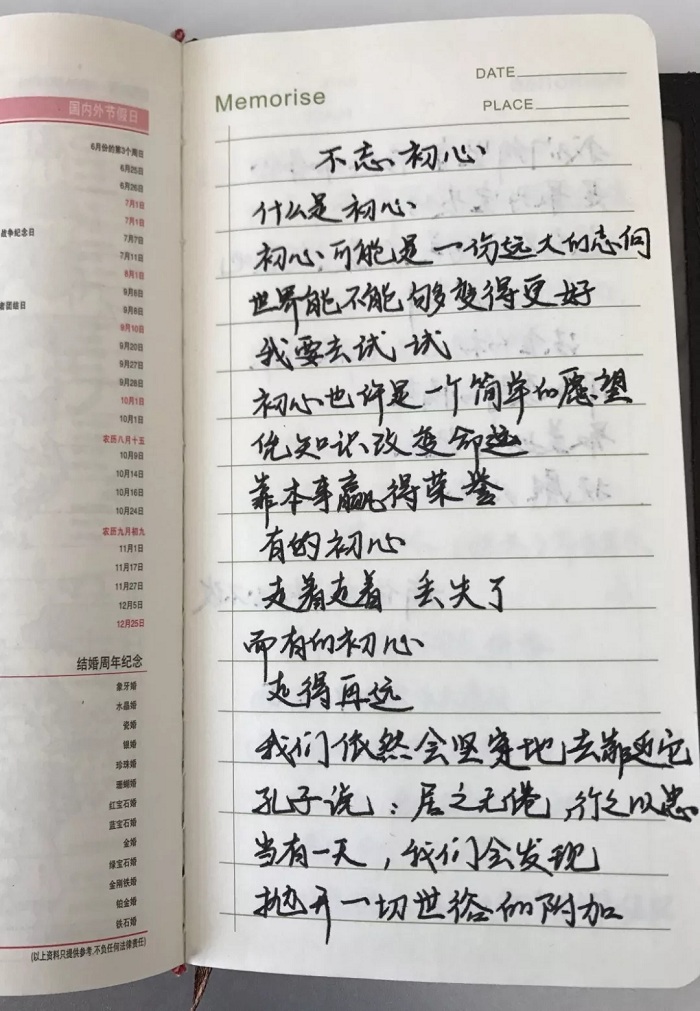 国内外节假日
6月份的第3个周日
6月25日
6月26日
7月1日
7月1日
战争纪念日
7月7日
7月11日
8月1日
9月8日
者团结日
9月8日
9月10日
9月20日
9月27日
9月28日
10月1日
10月1日
农历八月十五
10月9日
10月14日
10月16日
10月24日
农历九月初九
11月1日
11月17日
11月27日
12月5日
12月25日
结婚周年纪念
象牙婚
水晶婚
瓷婚
银婚
珍珠婚
珊瑚婚
红宝石婚
蓝宝石婚
金婚
绿宝石婚
金刚钻婚
铂金婚
铁石婚
(以上资料只提供参考,不负任何法律责任)
Memorise
DATE
PLACE
不忘初心
什么是初心
初心可能是一份远大的志向
世界能不能够变得更好
我要去试试
初心也许是一个简单的愿望
凭知识改变命运
靠本事赢得荣誉
有的初心
走着走着丢失了
而有的初心
走得再远
我们依然会坚定地去靠近它
孔子说：居之无倦，行之以忠
当有一天，我们会发现
抛开一切世俗的附加